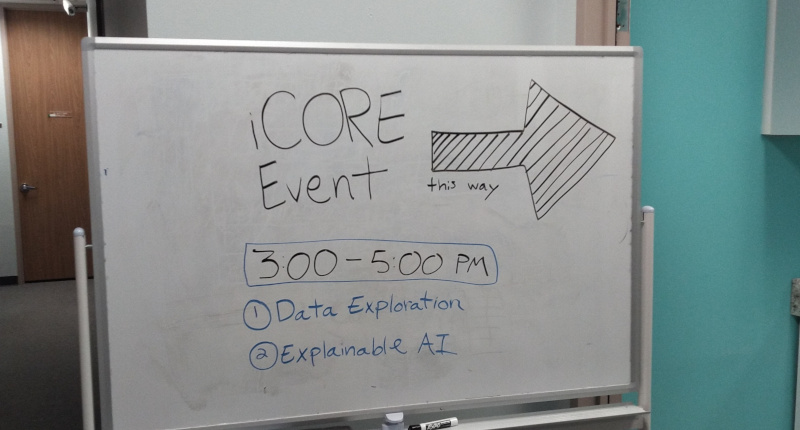 iCORE
Event
this way
3:00 - 5:00 PM
① Data Exploration
② Explainable AI